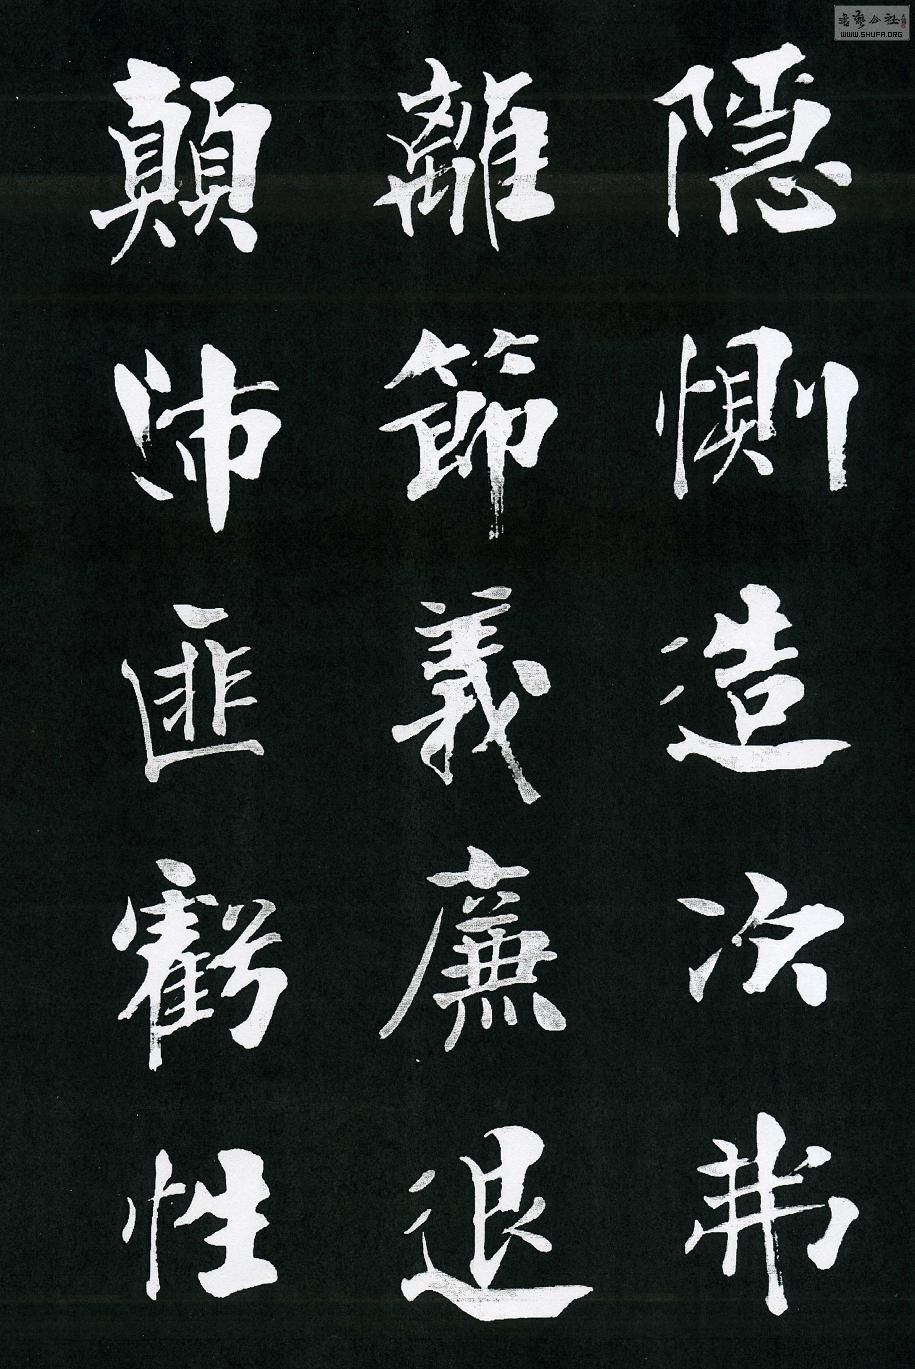 隱惻造次弗
離節義廉退
顛沛匪虧性
WWW.SHUFA.ORG